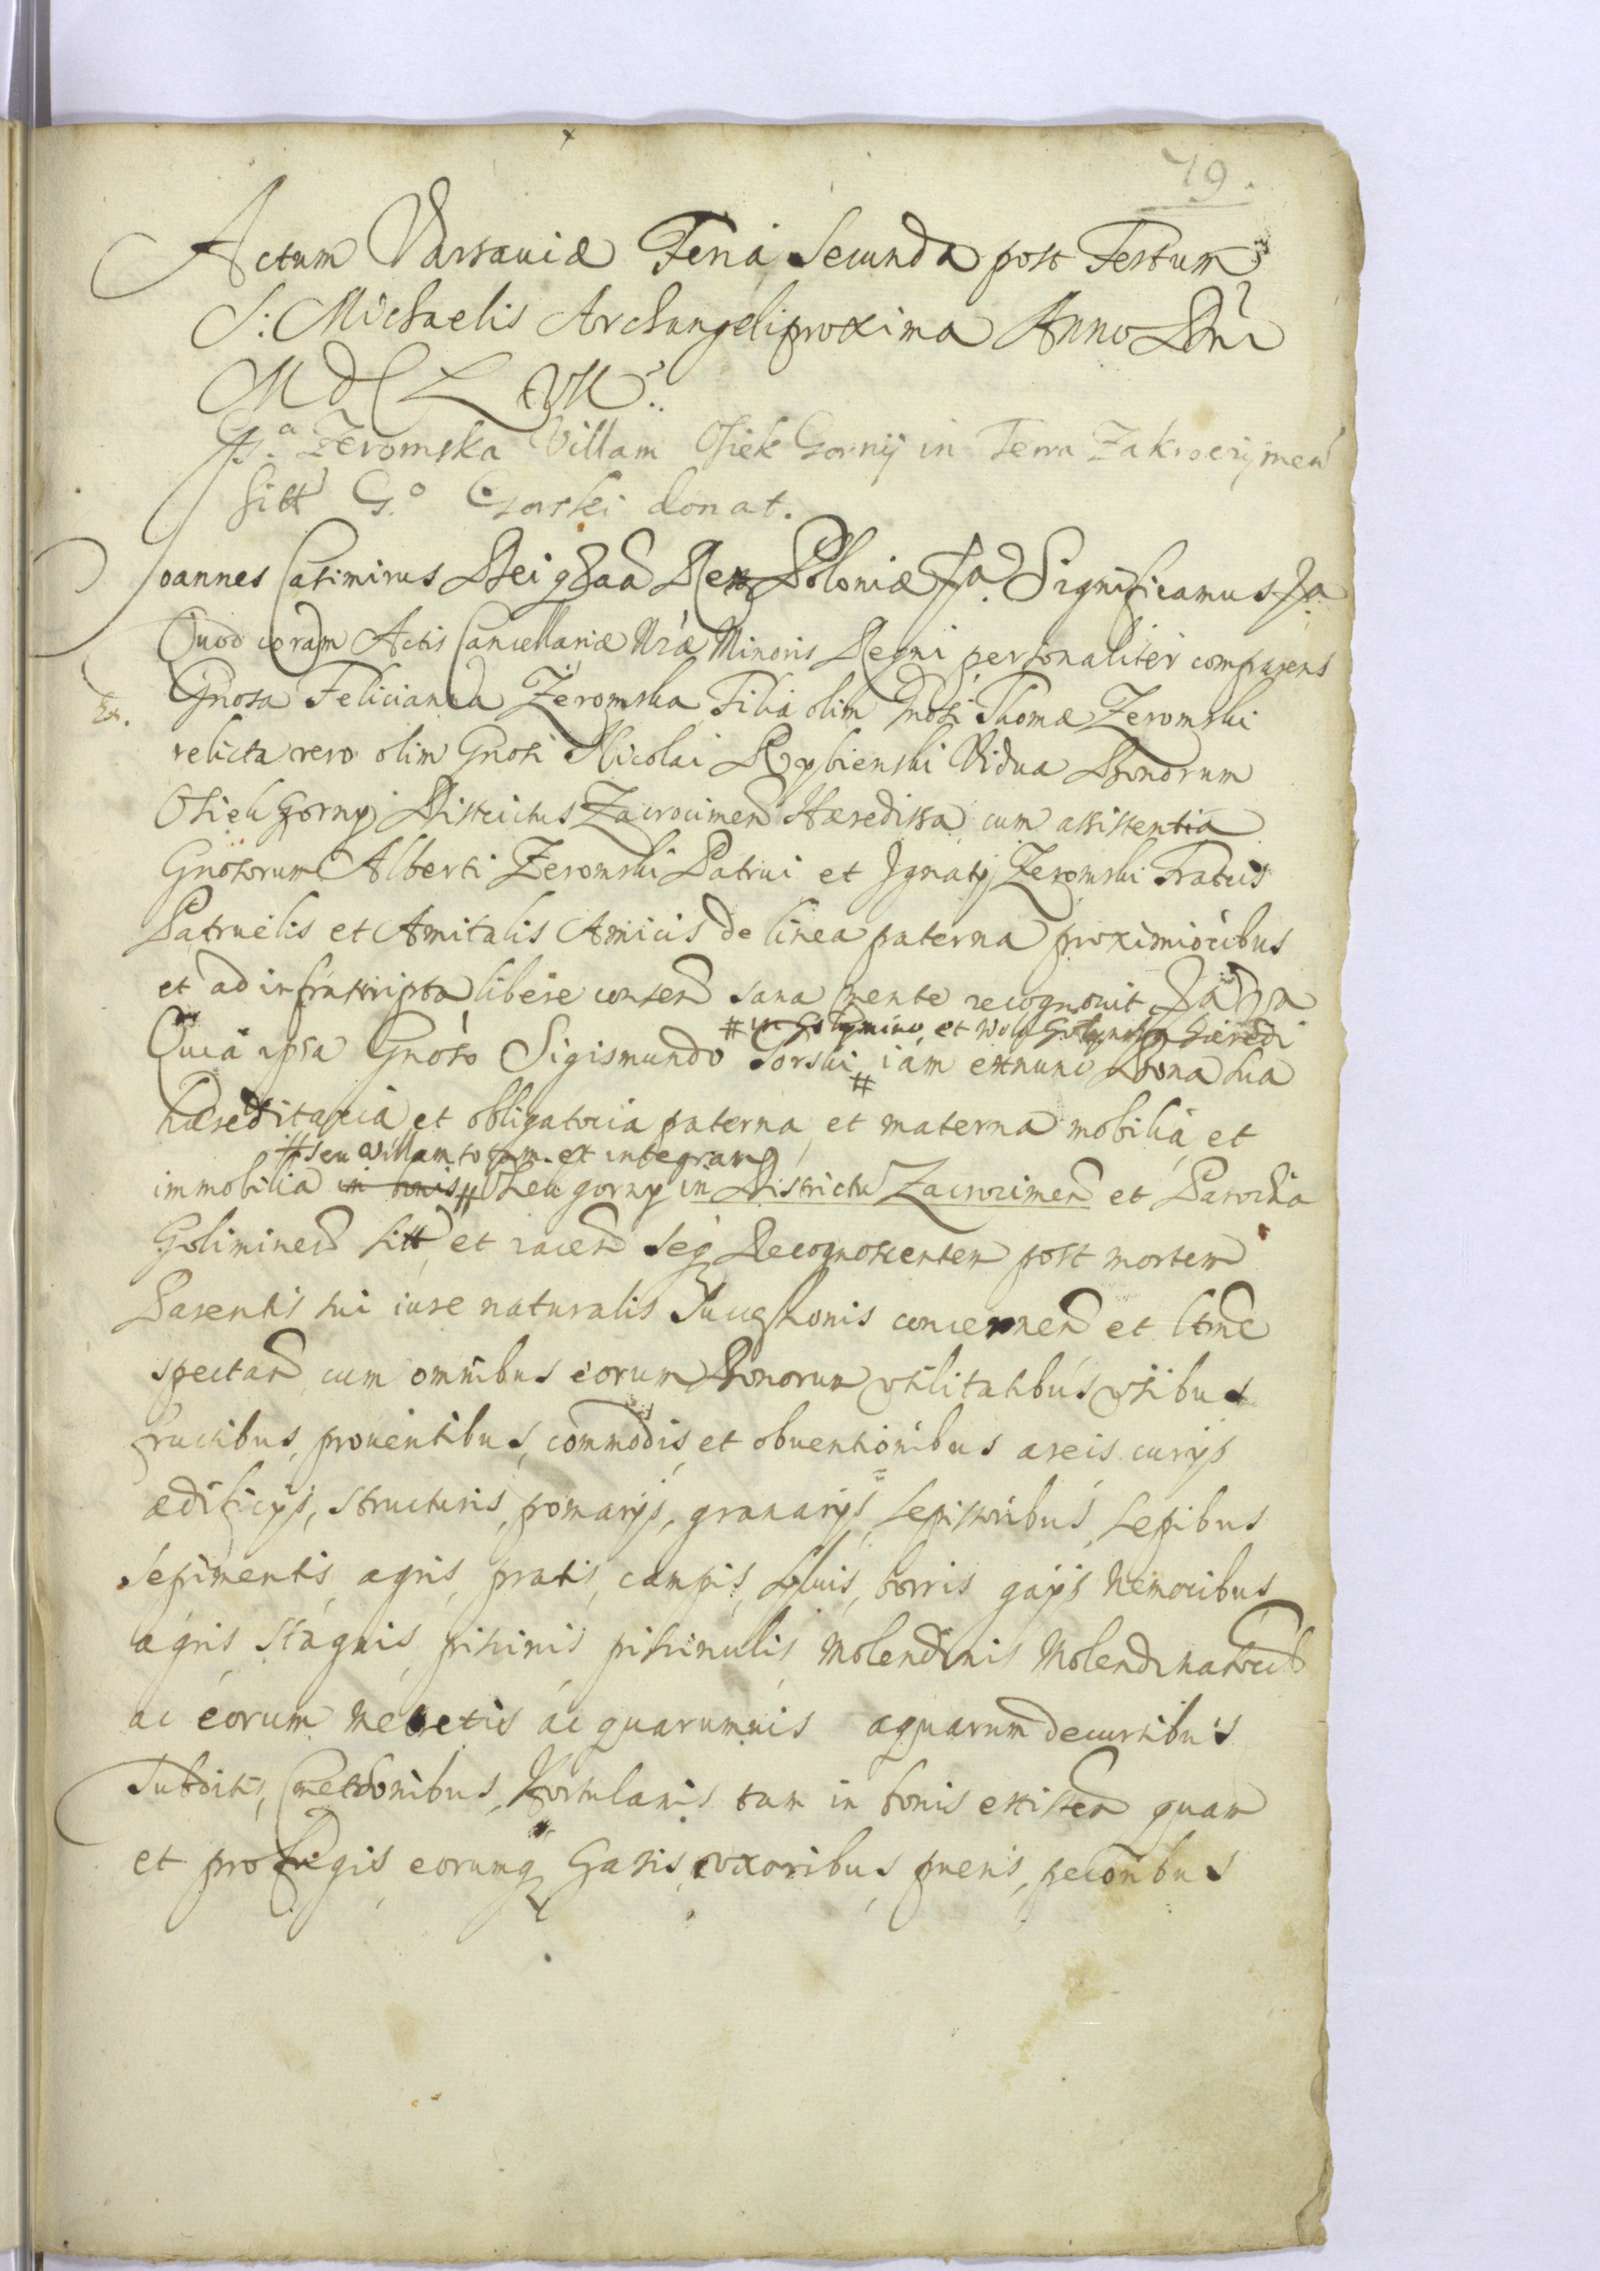 79.
Actum Varsaviæ Feria Secunda post Festum
S: Michaelis Archangeli proxima Anno Dni
MDCLVII.
G.a Zeromska Villam Osiek Gornij in Terra Zakroczijmen
sitt G.o Gorski donat.
Joannes Casimirus Dei graa Rex Poloniæ Significamus
Quod coram Actis Cancellariæ Nræ Minoris Regni personaliter comparens
Gnosa Felicianna Zeromska Filia olim Gnosi Thomæ Zeromski
Ex.
relicta vero olim Gnosi Nicolai Rybienski Vidua Bonorum
Osiek Gorny Districtus Zacrocimen Hæredissa cum assistentia
Gnosorum Alberti Zeromski Patrui et Ignatij Zeromski Fratris
Patruelis et Amitalis Amicis de linea paterna proximioribus
et ad infrascripta libere consen sana mente recognovit
# in Golymino et Wola Golymska hæredi
Quia ipsa Gnoso Sigismundo Gorski # iam exnunc Bona sua
hæreditaria et obligatoria paterna et materna mobilia et
# seu villam totam et integram
immobilia in bonis # Osieu gorny in Districtu Zacrocimen et Parochia
Goliminen sitt et iacen seq Recognoscentem post mortem
Parentis sui iure naturalis Successionis concernen et ltme
spectan cum omnibus eorum Bonorum utilitatibus usibus
fructibus, proventibus, commodis, et obventionibus areis curijs
ædificijs, structuris, pomarijs, granarijs, sepistribus, sepibus
sepimentis, agris, pratis, campis, sylvis, borris gajis nemoribus
agris stagnis, piscinis piscinulis molendinis Molendinatorib
ac eorum metretis ac quarumvis aquarum decursibus
Subditis, Cmethonibus, Hortulanis tam in bonis existen quam
et profugis, eorumq Gazis, uxoribus, pueris, pecoribus